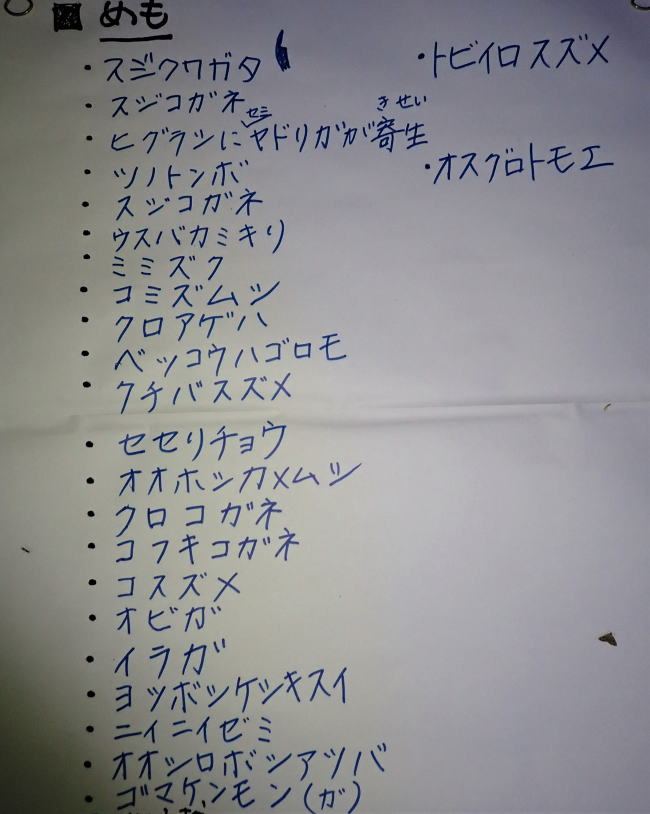 ■ めも
・スジクワガタ
・スジコガネ
・ヒグラシにセミヤドリガが寄生
きせい
・ツノトンボ
・スジコガネ
・ウスバカミキリ
・ミミズク
・コミズムシ
・クロアゲハ
・ベッコウハゴロモ
・クチバスズメ
・セセリチョウ
・オオホシカメムシ
・クロコガネ
・コフキコガネ
・コスズメ
・オビガ
・イラガ
・ヨツボシケシキスイ
・ニイニイゼミ
・オオシロボシアツバ
・ゴマケンモン(ガ)
・トビイロスズメ
・オスグロトモエ